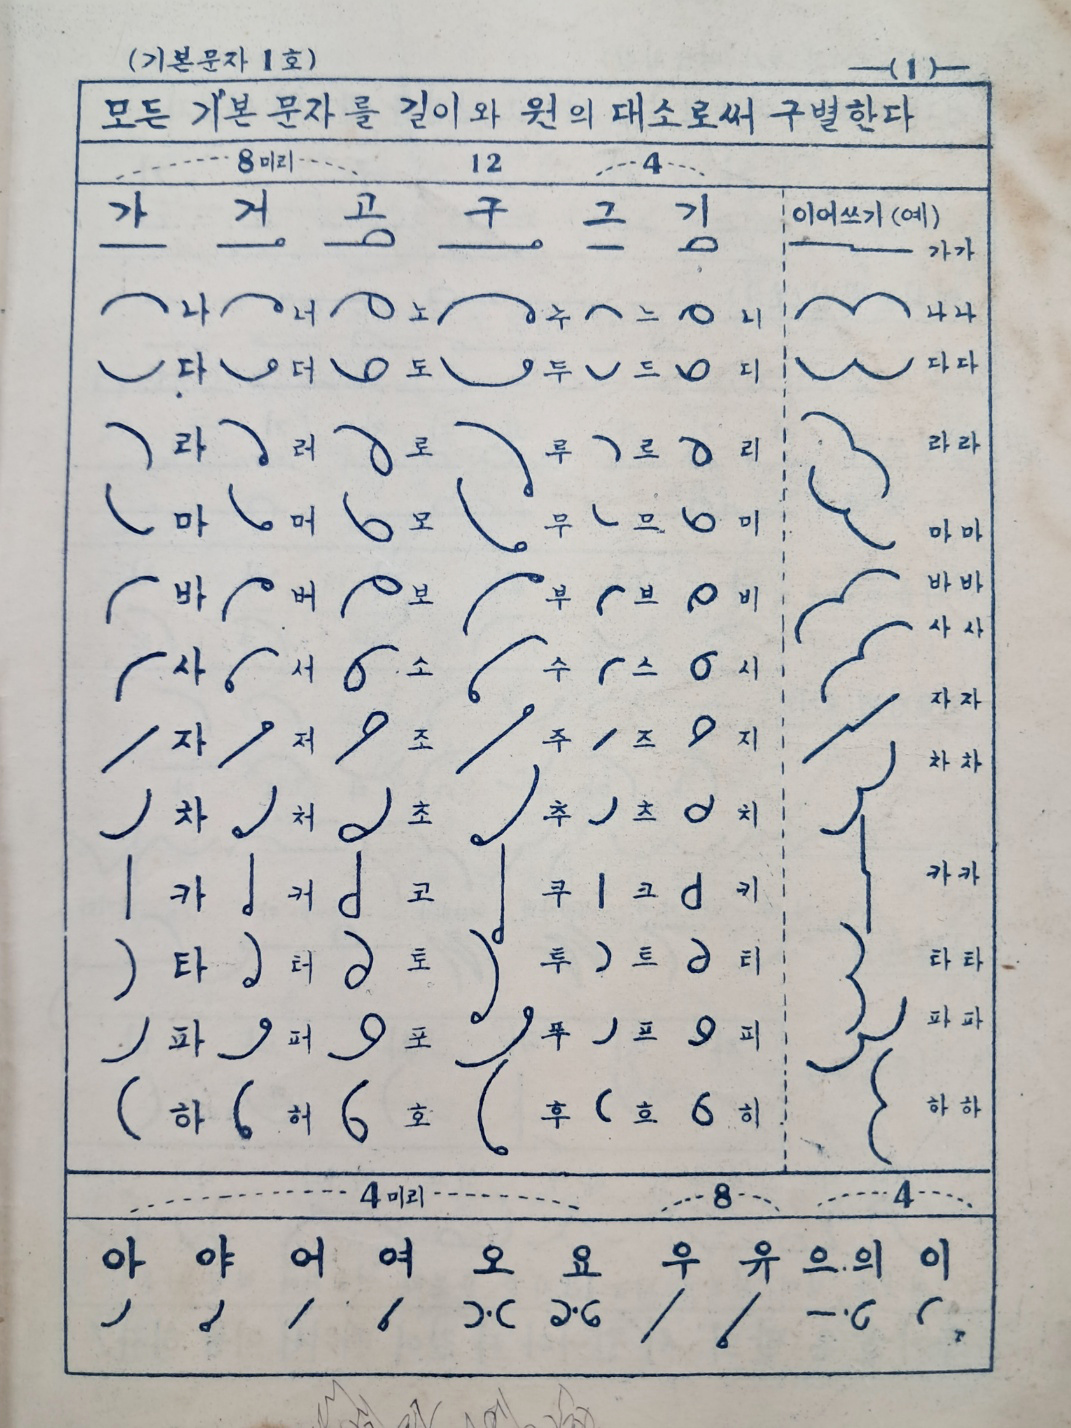 (기본문자 1호)
(1)
모든 기본 문자를 길이와 원의 대소로써 구별한다
8미리 12 4
가 거 고 구 그 기 이어쓰기(예)
가가
나 너 노 누 느 니 나나
다 더 도 두 드 디 다다
라 러 로 루 르 리 라라
마 머 모 무 므 미 마마
바 버 보 부 브 비 바바
사 서 소 수 스 시 사사
자 저 조 주 즈 지 자자
차 처 초 추 츠 치 차차
카 커 코 쿠 크 키 카카
타 터 토 투 트 티 타타
파 퍼 포 푸 프 피 파파
하 허 호 후 흐 히 하하
4미리 8 4
아 야 어 여 오 요 우 유 으.의 이